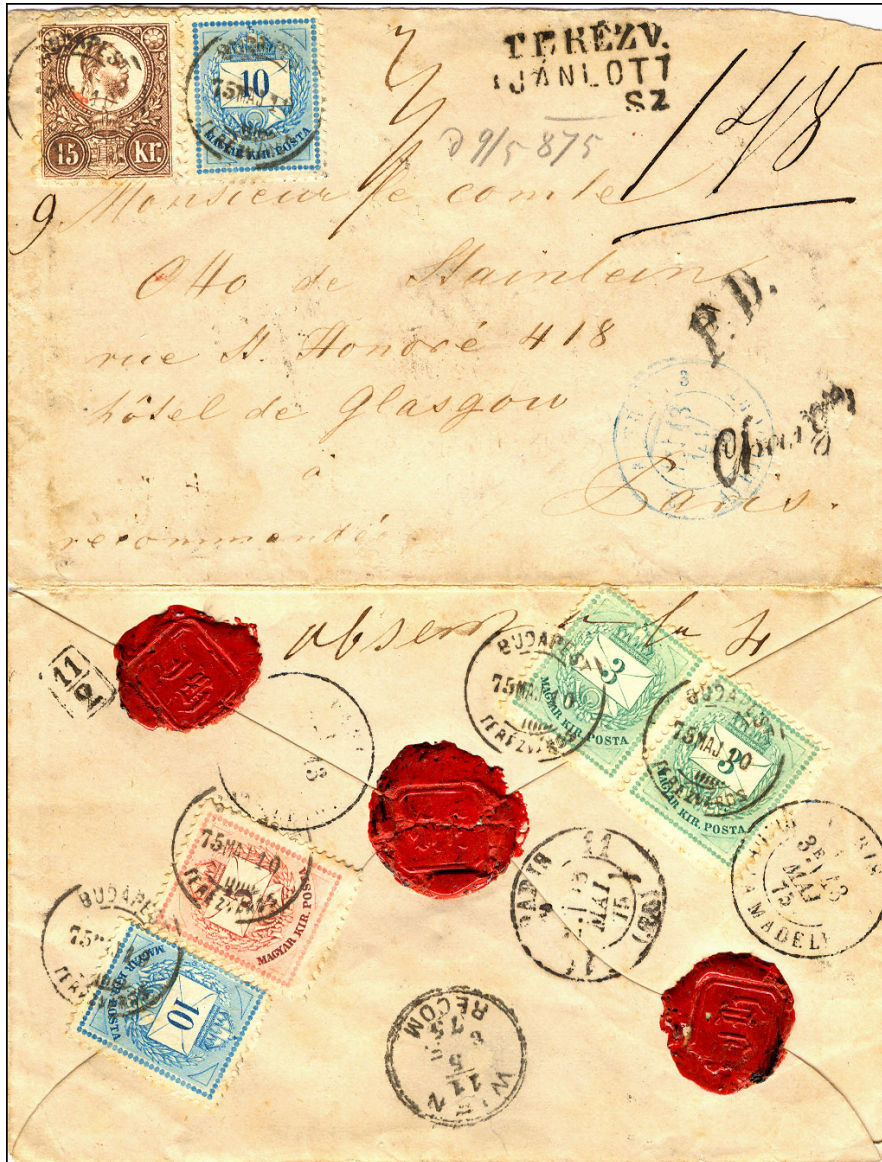 BUDAPEST
15 Kr.
10
75 MAJ
MAGYAR KIR. POSTA
TERÉZV.
AJÁNLOTT
SZ
148
9/5 875
9. Monsieur le comte
Otto de Stainlein
rue St. Honoré 418
hôtel de Glasgow
à
Paris.
recommandé
P.D.
Chargé
3
11
2
3
MAGYAR KIR. POSTA
BUDAPEST
75 MAJ 10
TERÉZVÁROS
3
MAGYAR KIR. POSTA
BUDAPEST
75 MAJ 10
TERÉZVÁROS
MAGYAR KIR. POSTA
75 MAJ 10
TERÉZVÁROS
10
MAGYAR KIR. POSTA
BUDAPEST
TERÉZVÁROS
PARIS
11
13
MAI
75
(60)
PARIS
3E
13
MAI
75
WIEN
11
5
RECOM